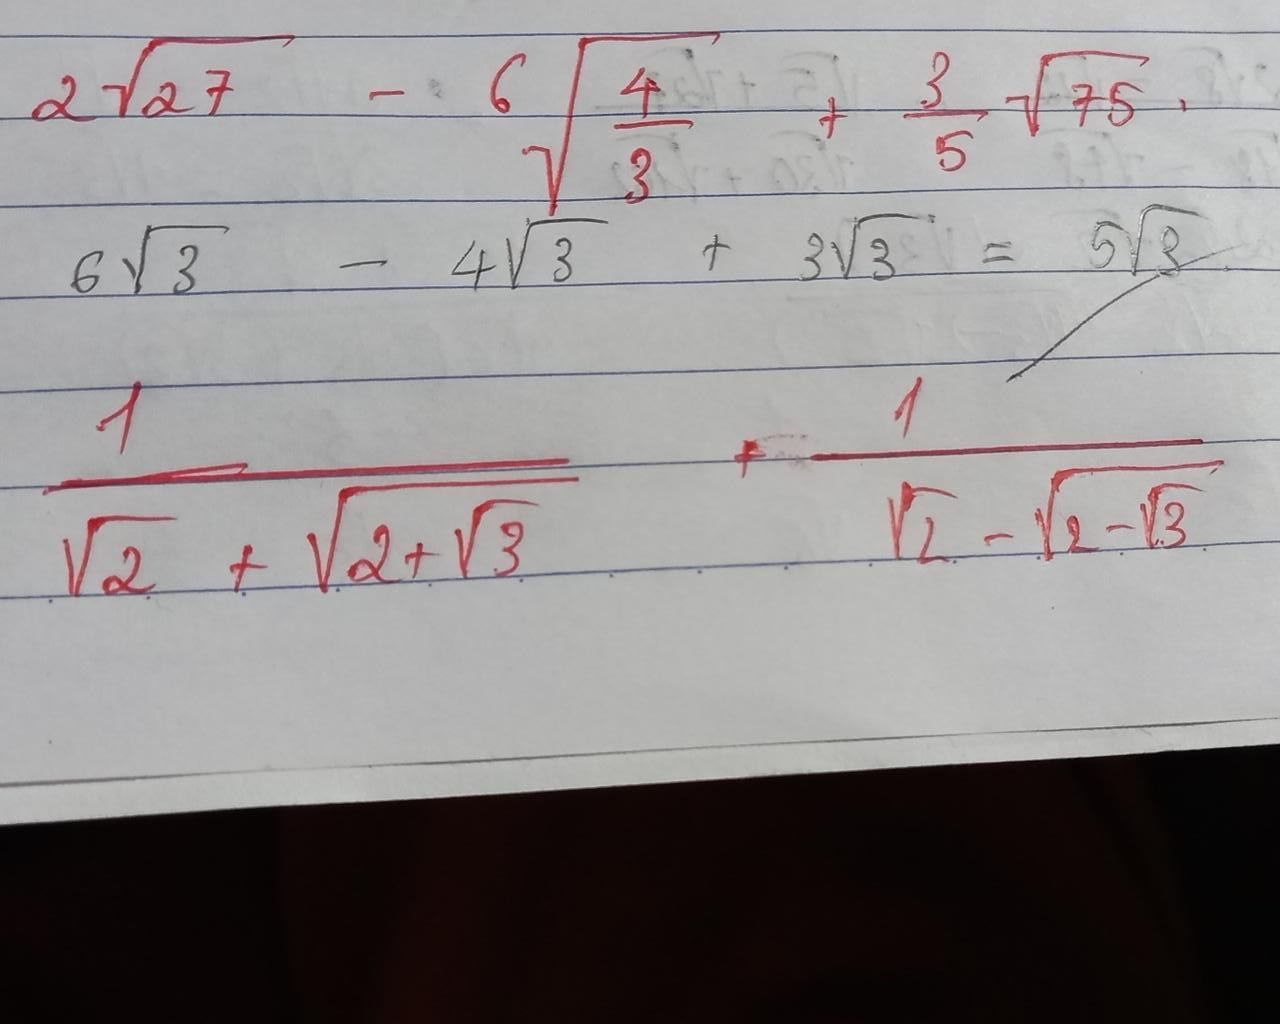 2√27 - 6√(4/3) + 3/5 √75 .
6√3 - 4√3 + 3√3 = 5√3
1/(√2 + √(2+√3)) + 1/(√2 - √(2-√3))